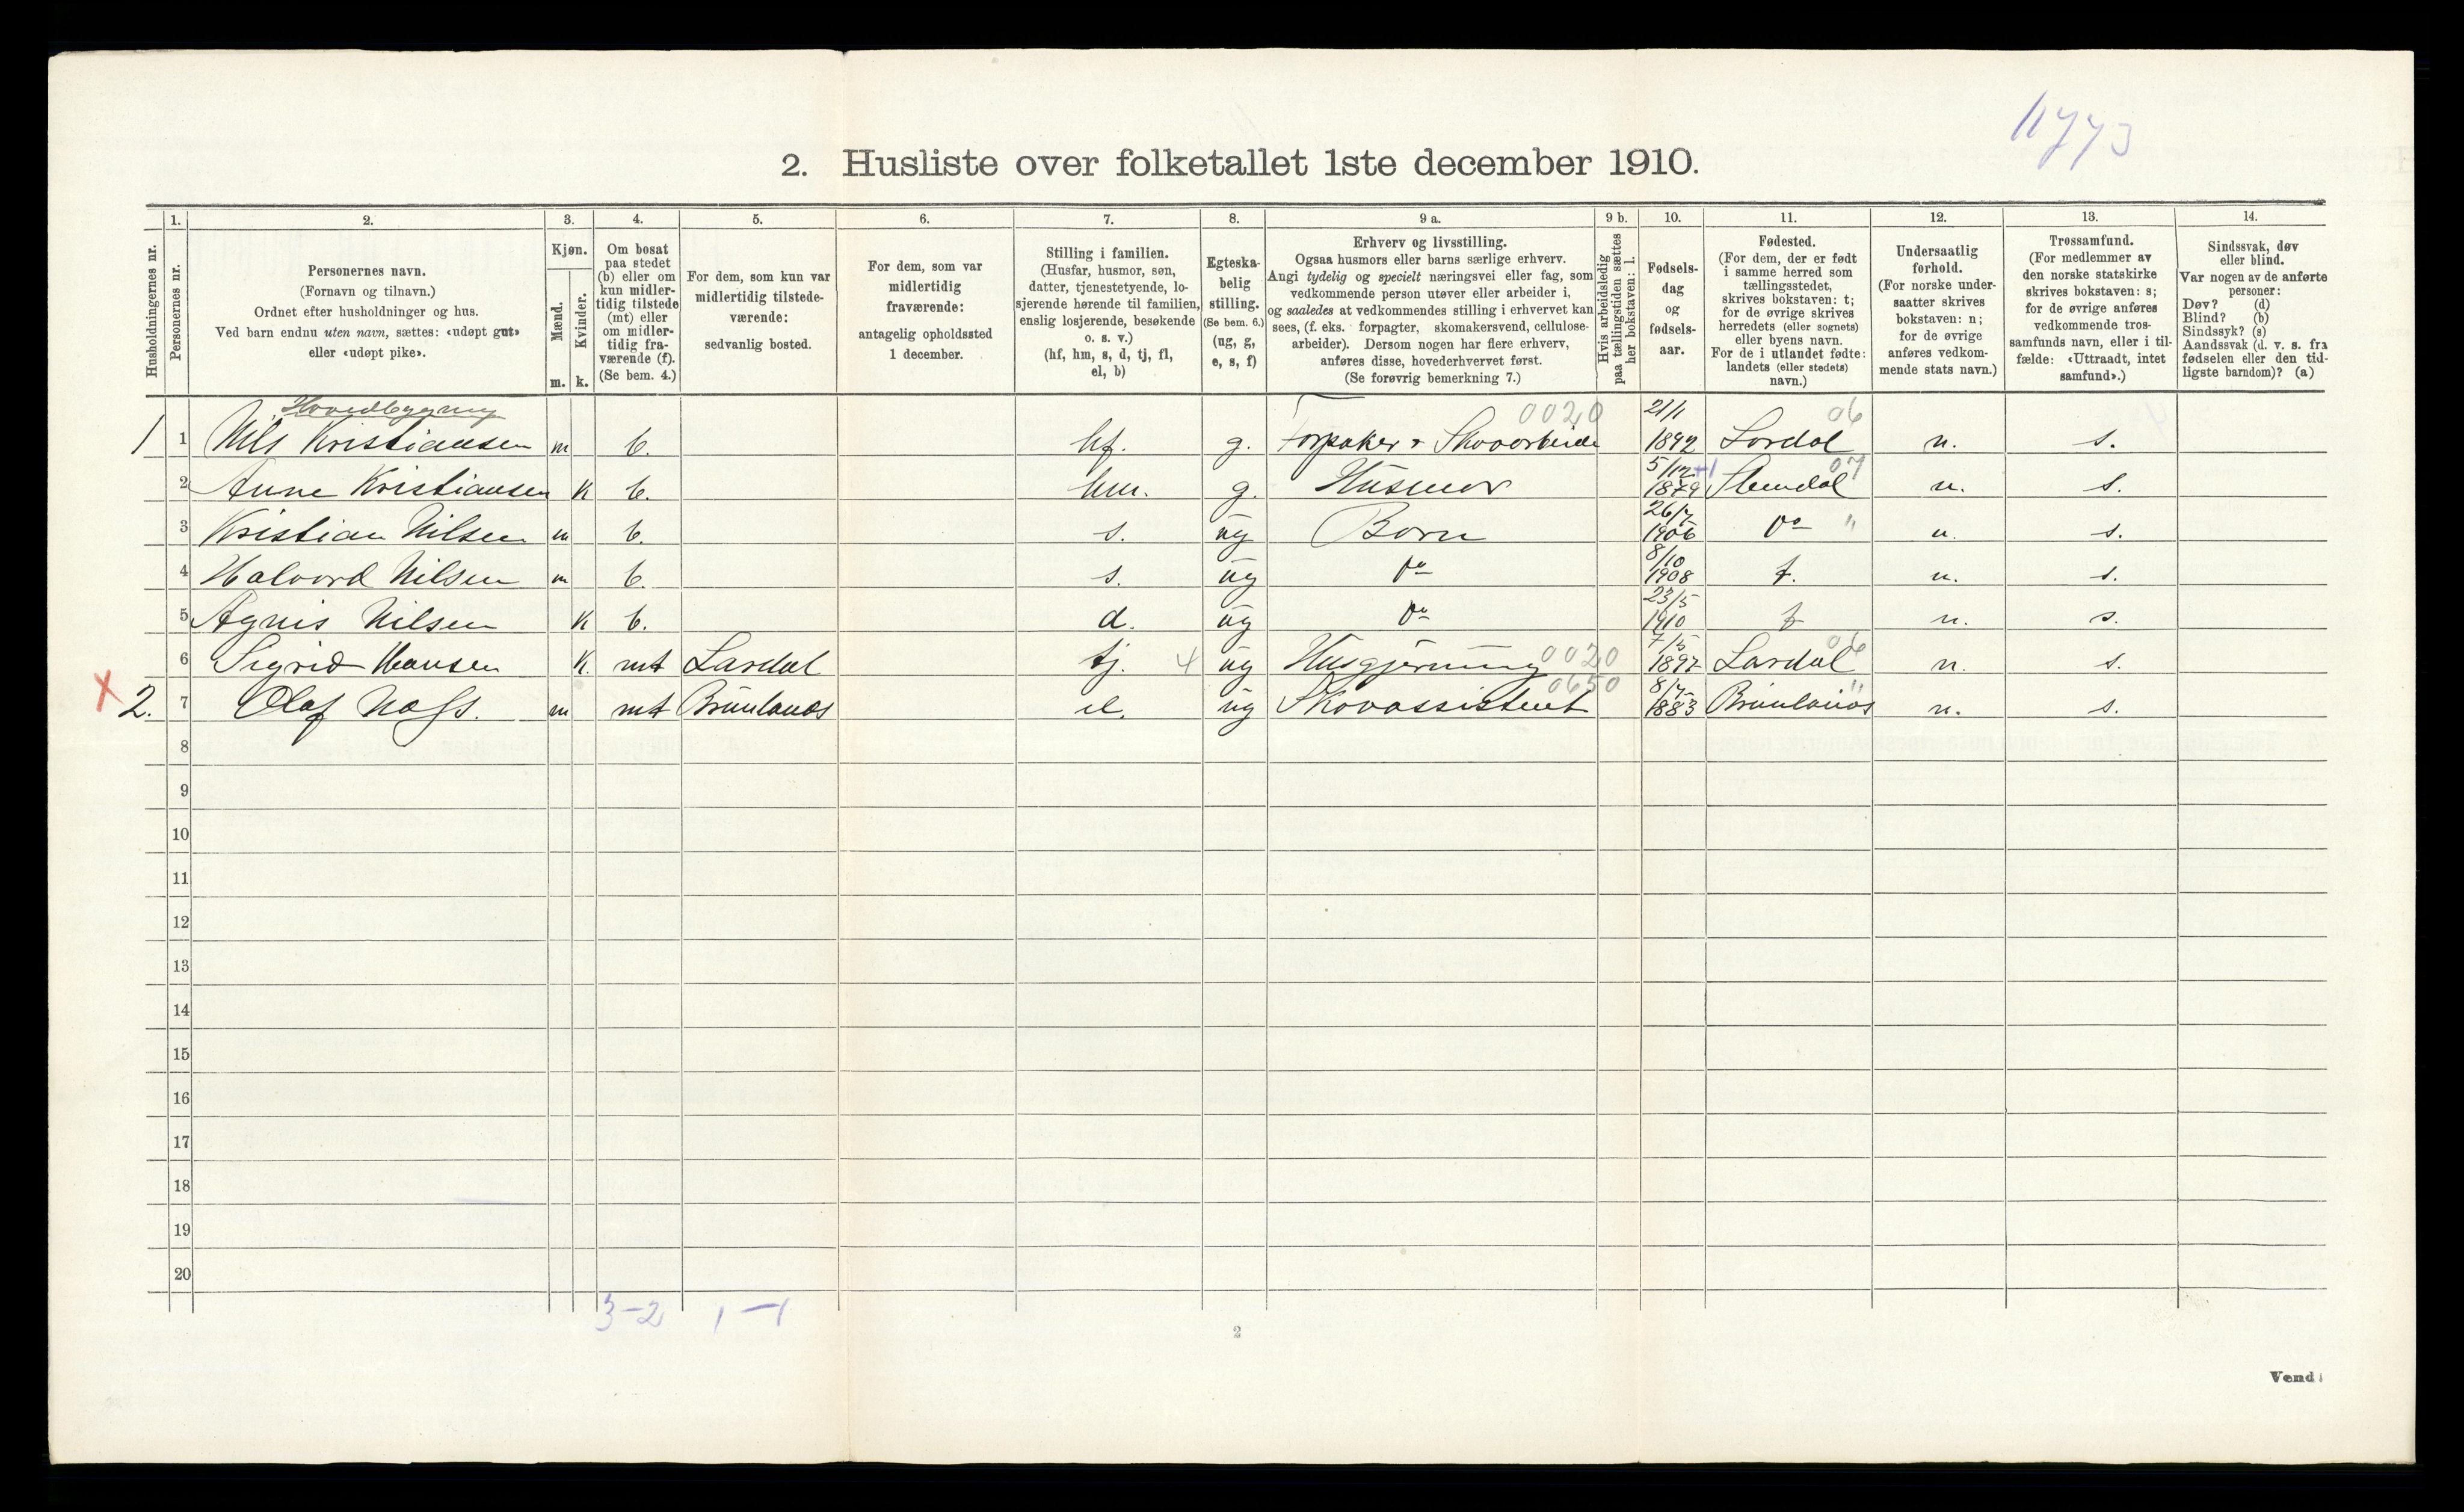 11773
2. Husliste over folketallet 1ste december 1910.
Husholdningernes nr.
1.
Personernes nr.
2.
Personernes navn.
(Fornavn og tilnavn.)
Ordnet efter husholdninger og hus.
Ved barn endnu uten navn, sættes: «udøpt gut»
eller «udøpt pike».
3.
Kjøn.
Mænd.
m.
Kvinder.
k.
4.
Om bosat
paa stedet
(b) eller om
kun midler-
tidig tilstede
(mt) eller
om midler-
tidig fra-
værende (f).
(Se bem. 4.)
5.
For dem, som kun var
midlertidig tilstede-
værende:
sedvanlig bosted.
6.
For dem, som var
midlertidig
fraværende:
antagelig opholdssted
1 december.
7.
Stilling i familien.
(Husfar, husmor, søn,
datter, tjenestetyende, lo-
sjerende hørende til familien,
enslig losjerende, besøkende
o. s. v.)
(hf, hm, s, d, tj, fl,
el, b)
8.
Egteska-
belig
stilling.
(Se bem. 6.)
(ug, g,
e, s, f)
9 a.
Erhverv og livsstilling.
Ogsaa husmors eller barns særlige erhverv.
Angi tydelig og specielt næringsvei eller fag, som
vedkommende person utøver eller arbeider i,
og saaledes at vedkommendes stilling i erhvervet kan
sees, (f. eks. forpagter, skomakersvend, cellulose-
arbeider). Dersom nogen har flere erhverv,
anføres disse, hovederhvervet først.
(Se forøvrig bemerkning 7.)
9 b.
Hvis arbeidsledig
paa tællingstiden sættes
her bokstaven: l.
10.
Fødsels-
dag
og
fødsels-
aar.
11.
Fødested.
(For dem, der er født
i samme herred som
tællingsstedet,
skrives bokstaven: t;
for de øvrige skrives
herredets (eller sognets)
eller byens navn.
For de i utlandet fødte:
landets (eller stedets)
navn.)
12.
Undersaatlig
forhold.
(For norske under-
saatter skrives
bokstaven: n;
for de øvrige
anføres vedkom-
mende stats navn.)
13.
Trossamfund.
(For medlemmer av
den norske statskirke
skrives bokstaven: s;
for de øvrige anføres
vedkommende tros-
samfunds navn, eller i til-
fælde: «Uttraadt, intet
samfund».)
14.
Sindssvak, døv
eller blind.
Var nogen av de anførte
personer:
Døv? (d)
Blind? (b)
Sindssyk? (s)
Aandssvak (d. v. s. fra
fødselen eller den tid-
ligste barndom)? (a)
Hovedbygning 0020 21/1 06
1 1 Nils Kristiansen m b. hf. g. Forpakter + Skovarbeide 1892 Lardal n. s.
5/12 +1 07
2 Anne Kristiansen k b. hm. g. Husmor 1879 Slemdal n. s.
26/7
3 Kristian Nilsen m b. s. ug Børn 1906 do " n. s.
8/10
4 Halvord Nilsen m b. s. ug do 1908 t. n. s.
23/5
5 Agnis Nilsen k b. d. ug do 1910 t n. s.
7/5 06
6 Sigrid Hansen k. mt Lardal tj. 4 ug Husgjerning 0020 1897 Lardal n. s.
0650 8/7 "
X 2. 7 Olaf m mt Brunlanes el. ug Skovassistent 1883 Brunlanes n. s.
8
9
10
11
12
13
14
15
16
17
18
19
20
3-2 1-1
2
Vend!